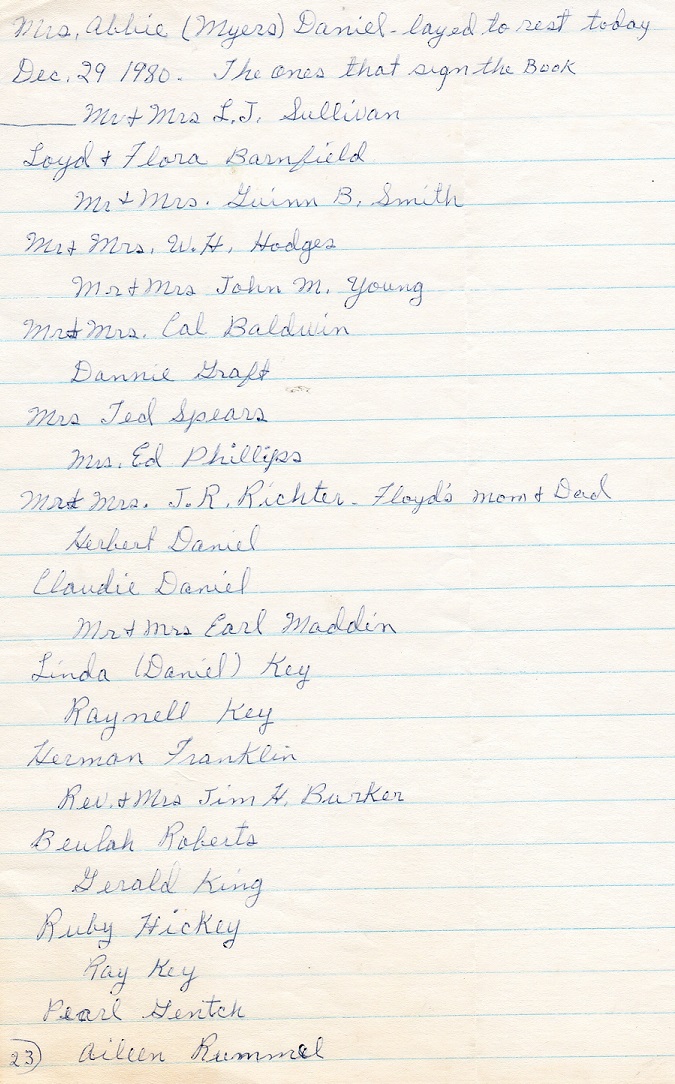 Mrs. Abbie (Myers) Daniel - layed to rest today
Dec. 29 1980. The ones that sign the Book
Mr & Mrs L.J. Sullivan
Loyd & Flora Barnfield
Mr & Mrs. Guinn B. Smith
Mr & Mrs. W.H. Hodges
Mr & Mrs John M. Young
Mr & Mrs. Cal Baldwin
Dannie Graft
Mrs Ted Spears
Mrs. Ed Phillips
Mr & Mrs. J.R. Richter - Floyd's mom & Dad
Herbert Daniel
Claudie Daniel
Mr & Mrs Earl Maddin
Linda (Daniel) Key
Raynell Key
Herman Franklin
Rev. & Mrs Jim H. Burker
Beulah Roberts
Gerald King
Ruby Hickey
Ray Key
Pearl Gentch
23) Aileen Rummel